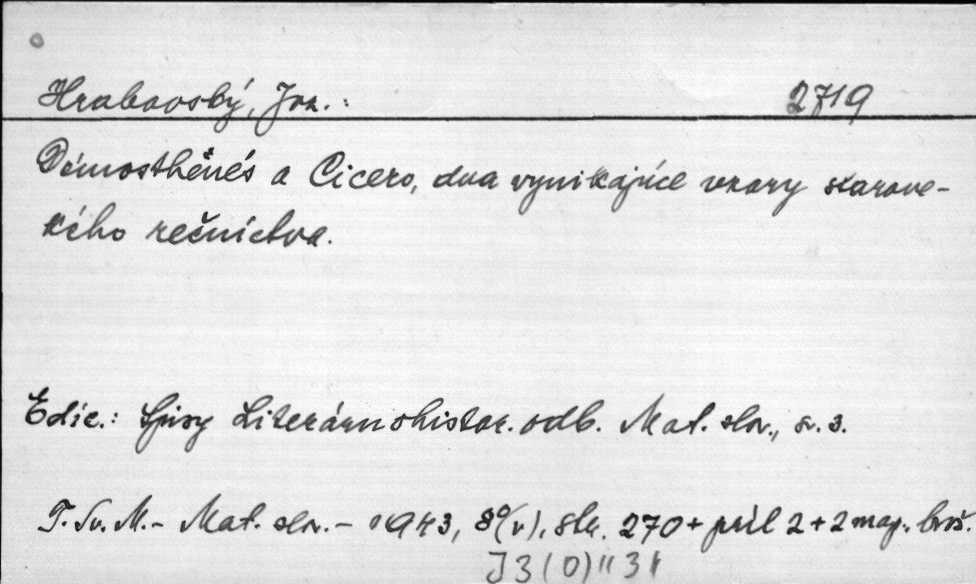 Hrabovský, Joz.: 2719
Démosthénés a Cicero, dva vynikajúce vzory starove-
kého rečníctva.
Edíc.: Spisy Literárnohistor. odb. Mat. slov., sv. 3.
T. Sv. M. - Mat. slov. - 1943, 8°(v), str. 270 + príl 2 + 2 map. brož.
J3(0)"3"